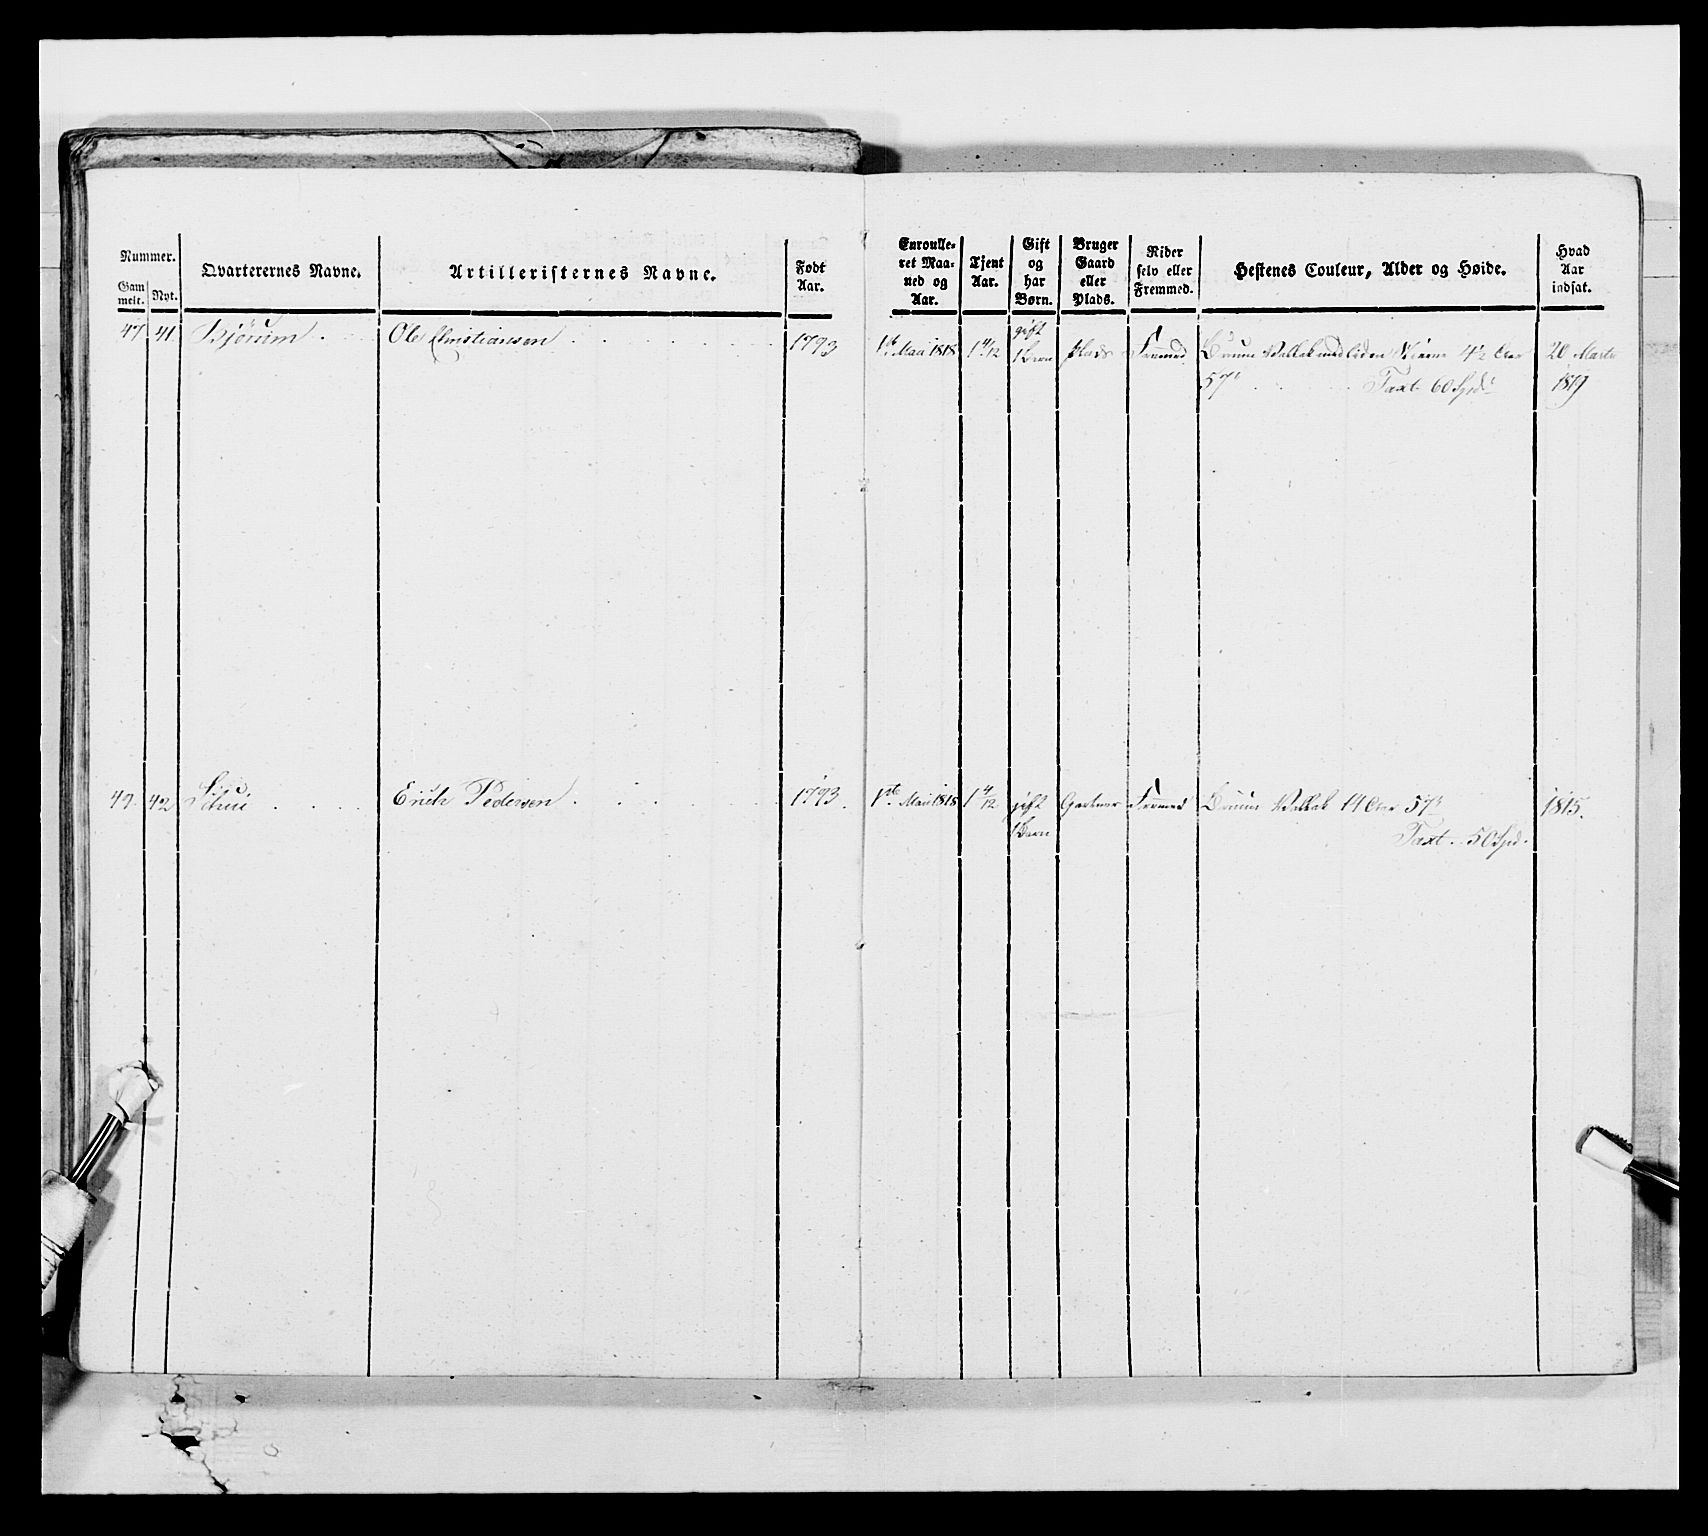 Nummer.
Gam melt.
Nyt.
Qvarterernes Navne.
Artilleristernes Navne.
Født
Aar.
Enroulle-
ret Maa-
ned og
Aar.
Tjent
Aar.
Gift
og
har
Børn.
Bruger
Gaard
eller
Plads.
Rider
selv eller
Fremmed.
Hestenes Couleur, Alder og Høide.
Hvad
Aar
indsat.
47 41. Bjørum . Ole Christiansen . . . . 1793 1ste Maii 1818 1 4/12 gift 1 Barn plads Fremmed Bruun Vallak med liden Stierne 4½ Aar 20 Marts
57" . . . Taxt 60 Spd 1819
49. 42 Schui . . . . Erich Pedersen . . . . 1793. 1ste Maii 1818 1 4/12 gift Gartner Fremmed Bruun Vallak 14 Aar 57" 1815.
1 Barn Taxt. 50 Spd.